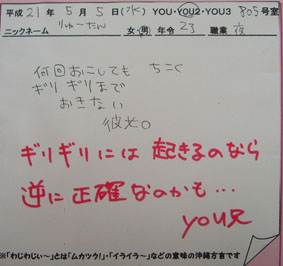 平成21年5月5日(水) YOU・YOU2・YOU3 805号室
ニックネーム りゅーたん 女・男 年令 23 職業 夜
何回おにしても ちこく
ギリギリまで
おきない
彼女。
ギリギリには 起きるのなら
逆に正確なのかも…
YOU兄
※「わじわじぃ~」とは「ムカツク!」・「イライラ~」などの意味の沖縄方言です